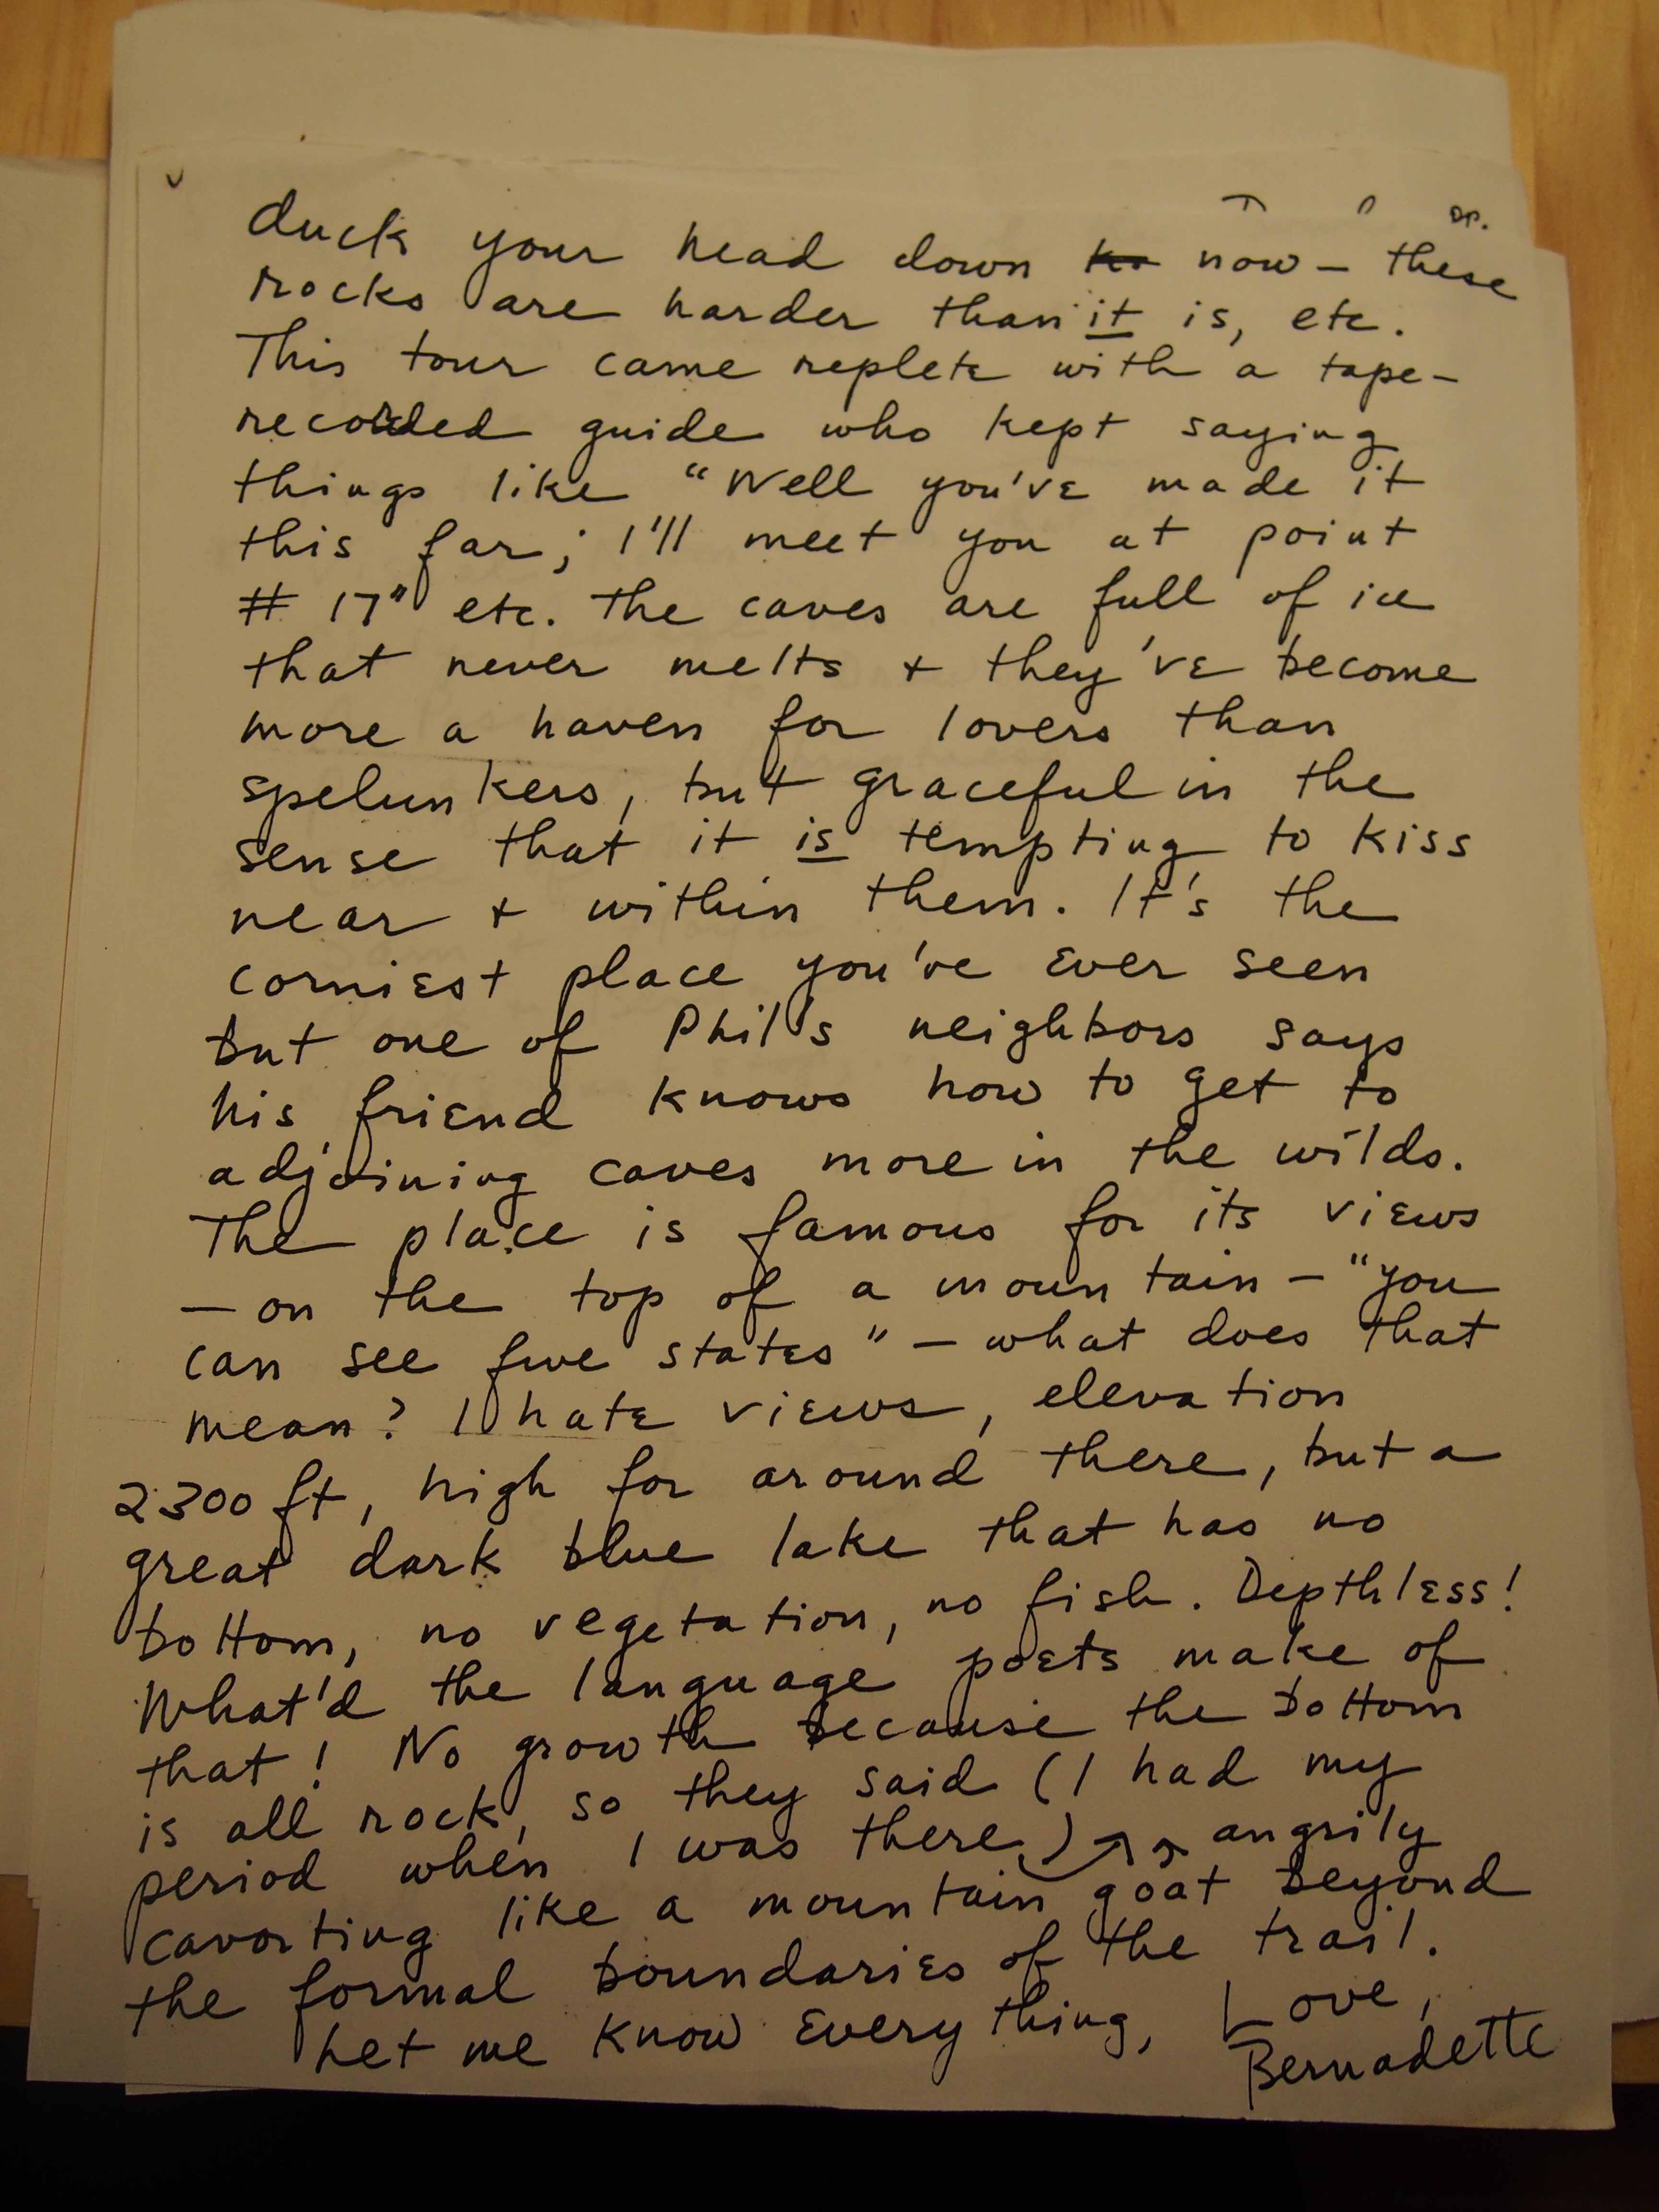 duck your head down now – these
rocks are harder than it is, etc.
This tour came replete with a tape-
recorded guide who kept saying
things like "Well you've made it
this far; I'll meet you at point
# 17" etc. The caves are full of ice
that never melts + they've become
more a haven for lovers than
spelunkers, but graceful in the
sense that it is tempting to kiss
near + within them. It's the
corniest place you've ever seen
but one of Phil's neighbors says
his friend knows how to get to
adjoining caves more in the wilds.
The place is famous for its views
– on the top of a mountain – "you
can see five states" – what does that
mean? I hate views, elevation
2300 ft, high for around there, but a
great dark blue lake that has no
bottom, no vegetation, no fish. Depthless!
What'd the language poets make of
that! No growth because the bottom
is all rock, so they said (I had my
period when I was there) angrily
cavorting like a mountain goat beyond
the formal boundaries of the trail.
Let me know everything, Love,
Bernadette